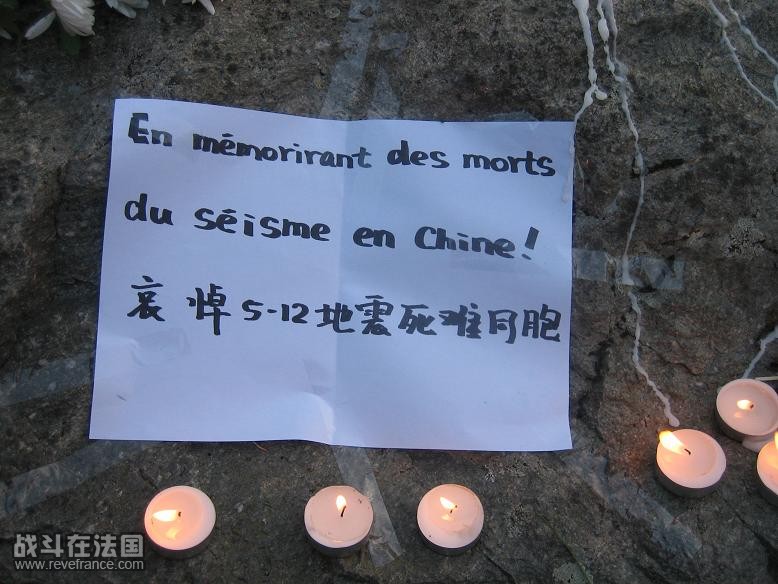 En mémorirant des morts
du séisme en Chine!
哀悼5-12地震死难同胞
战斗在法国
www.revefrance.com